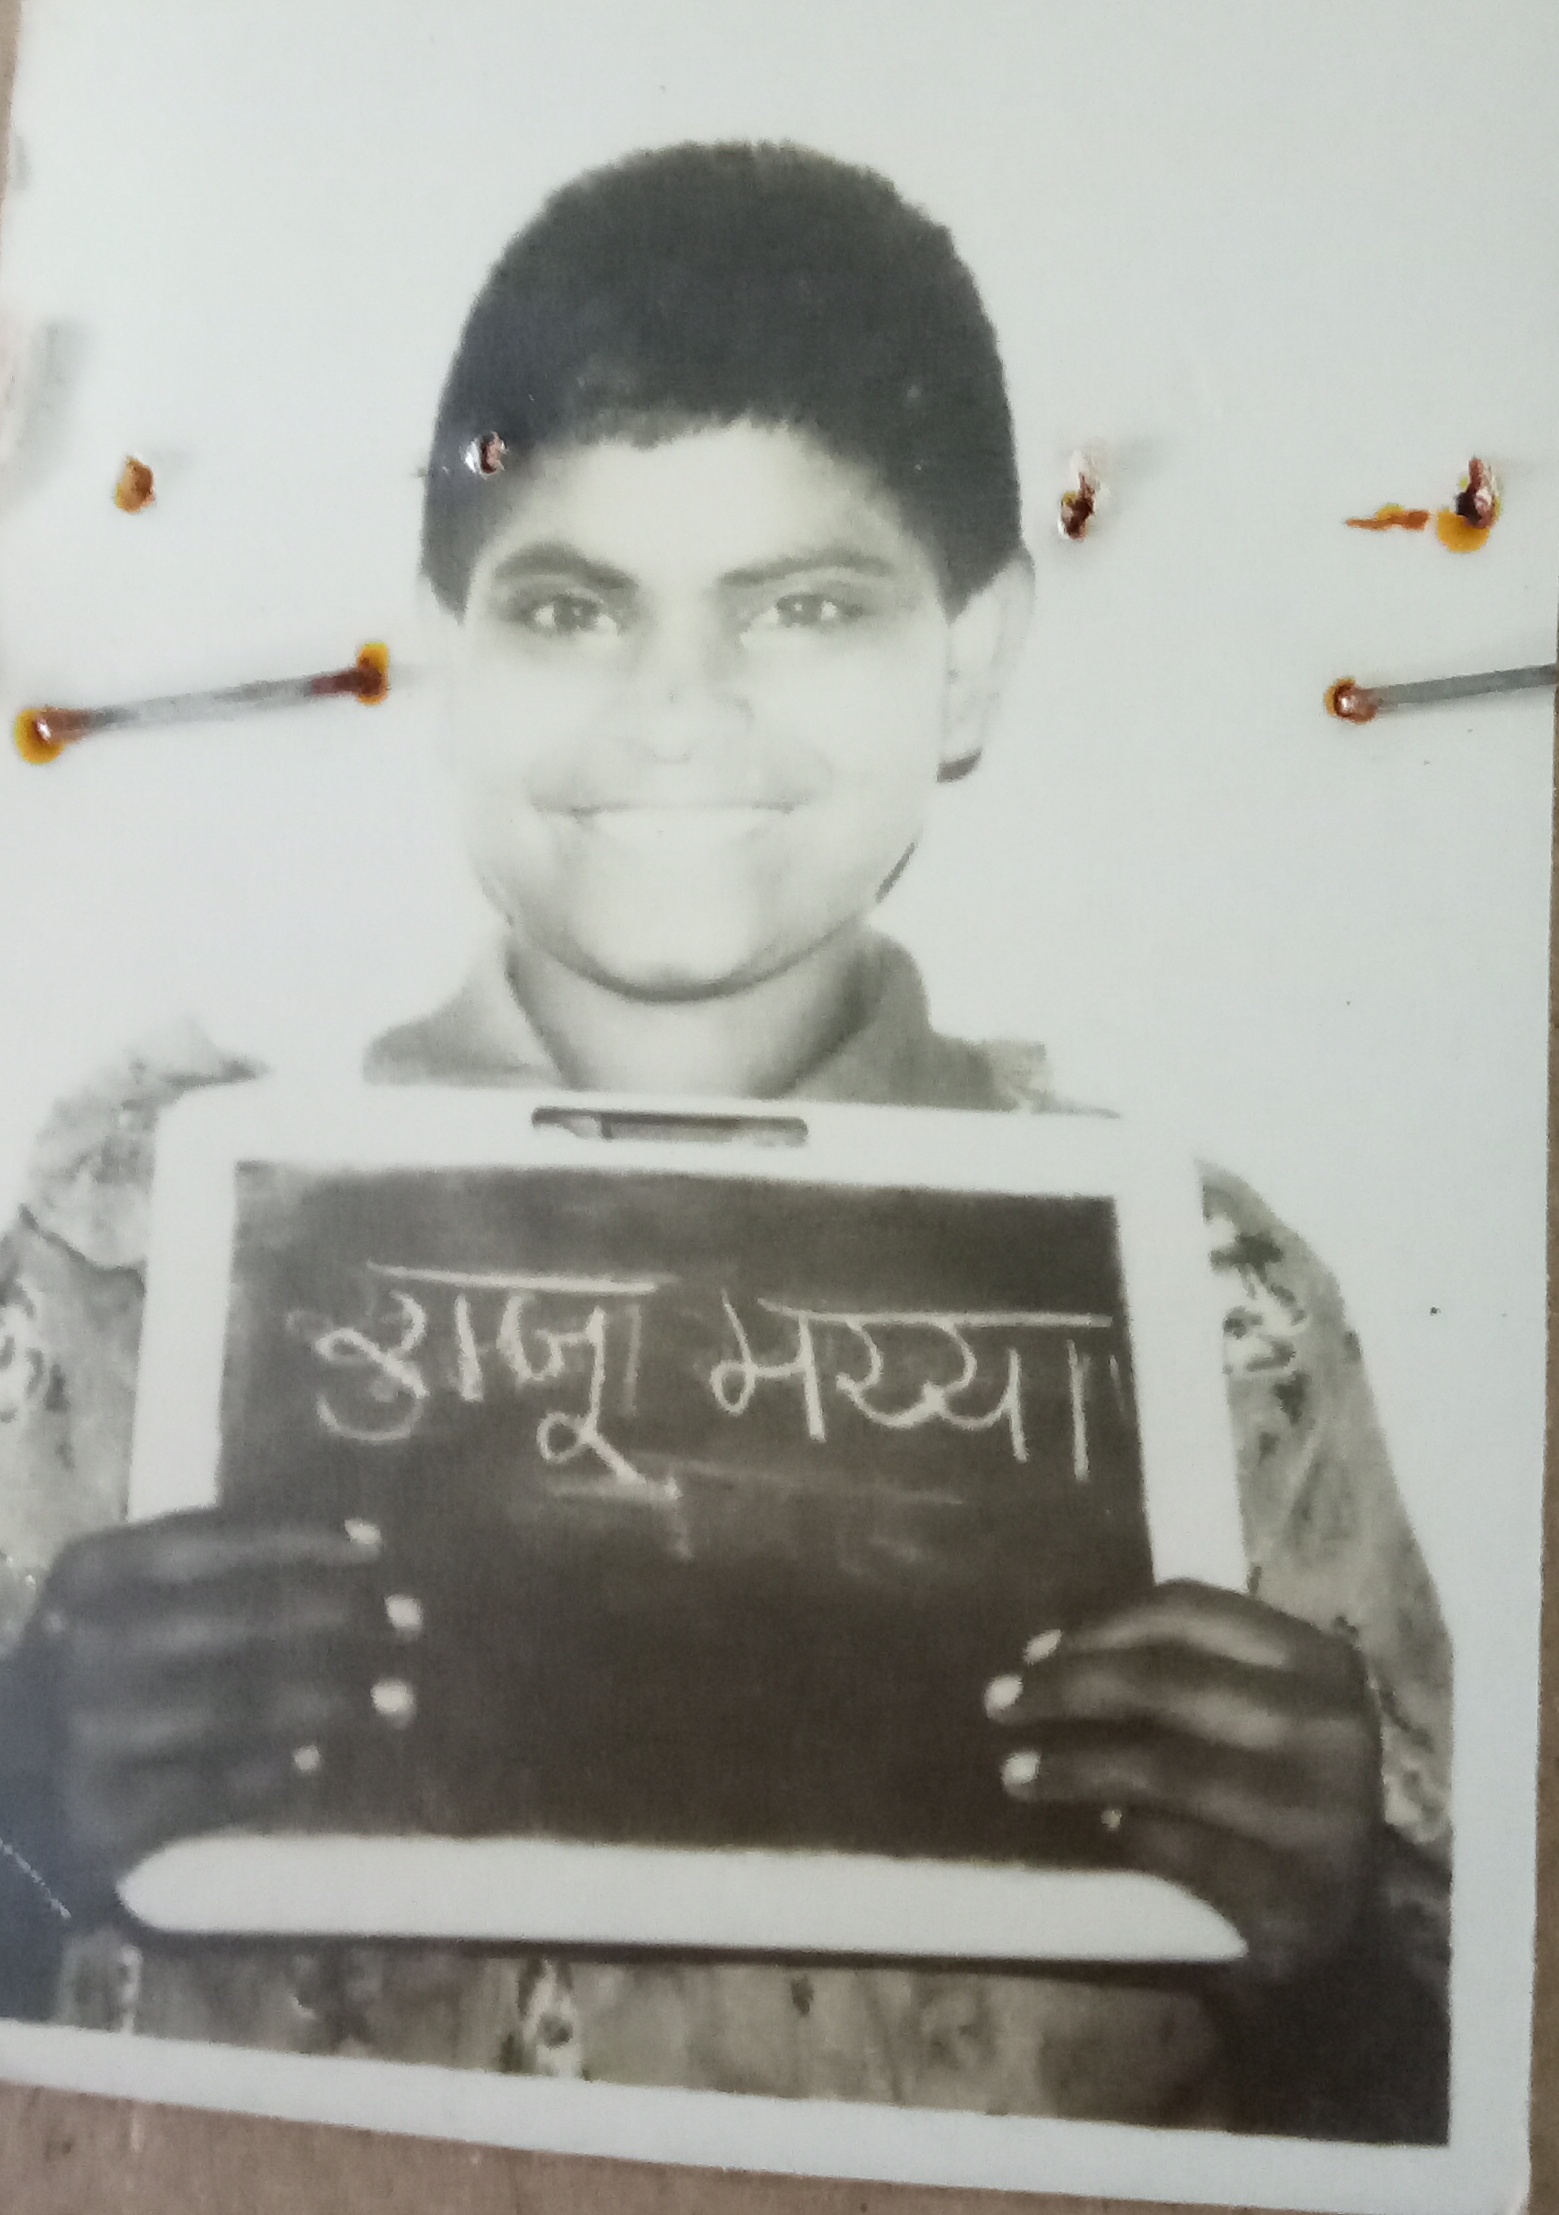 राजू भय्या